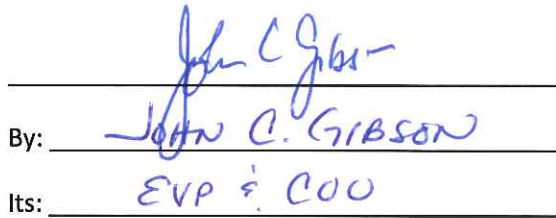 John C Gibson
By: JOHN C. GIBSON
Its: EVP & COO